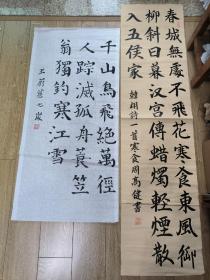 春城無處不飛花寒食東風御
柳斜日暮漢宮傳蠟燭輕煙散
入五侯家
韓翃詩一首寒食周高健書
千山鳥飛絕萬徑
人踪滅孤舟蓑笠
翁獨釣寒江雪
七歲